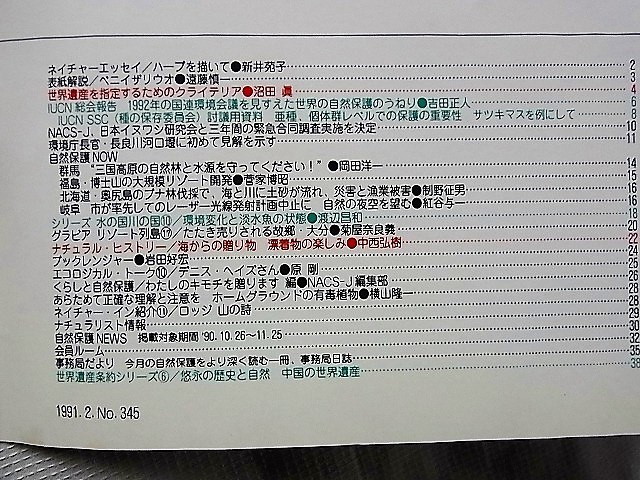 ネイチャーエッセイ／ハープを描いて●新井苑子 2
表紙解説／ベニイザリウオ●遠藤慎一 3
世界遺産を指定するためのクライテリア●沼田 眞 4
IUCN 総会報告 1992年の国連環境会議を見すえた世界の自然保護のうねり●吉田正人 6
IUCN SSC（種の保存委員会）討議用資料 亜種、個体群レベルでの保護の重要性 サツキマスを例にして 8
NACS-J、日本イヌワシ研究会と三年間の緊急合同調査実施を決定 10
環境庁長官・長良川河口堰に初めて見解を示す 11
自然保護NOW
群馬 “三国高原の自然林と水源を守ってください！”●岡田洋一 14
福島・博士山の大規模リゾート開発●菅家博昭 15
北海道・奥尻島のブナ林伐採で、海と川に土砂が流れ、災害と漁業被害●制野征男 16
岐阜 市が率先してのレーザー光線発射計画中止に 自然の夜空を望む●紅谷与一 16
シリーズ 水の国川の国⑩／環境変化と淡水魚の状態●渡辺昌和 18
グラビア リゾート列島⑰／たたき売りされる故郷・大分●菊屋奈良義 20
ナチュラル・ヒストリー／海からの贈り物 漂着物の楽しみ●中西弘樹 22
ブックレンジャー●岩田好宏 24
エコロジカル・トーク⑩／デニス・ヘイズさん●原 剛 25
くらしと自然保護／わたしのキモチを贈ります 編●NACS-J編集部 26
あらためて正確な理解と注意を ホームグラウンドの有毒植物●横山隆一 28
ネイチャー・イン紹介⑪／ロッジ 山の詩 28
ナチュラリスト情報 29
自然保護NEWS 掲載対象期間 '90.10.26〜11.25 30
会員ルーム 32
事務局だより 今月の自然保護をより深く読む一冊、事務局日誌 35
世界遺産条約シリーズ⑥／悠永の歴史と自然 中国の世界遺産 38
1991. 2. No. 345